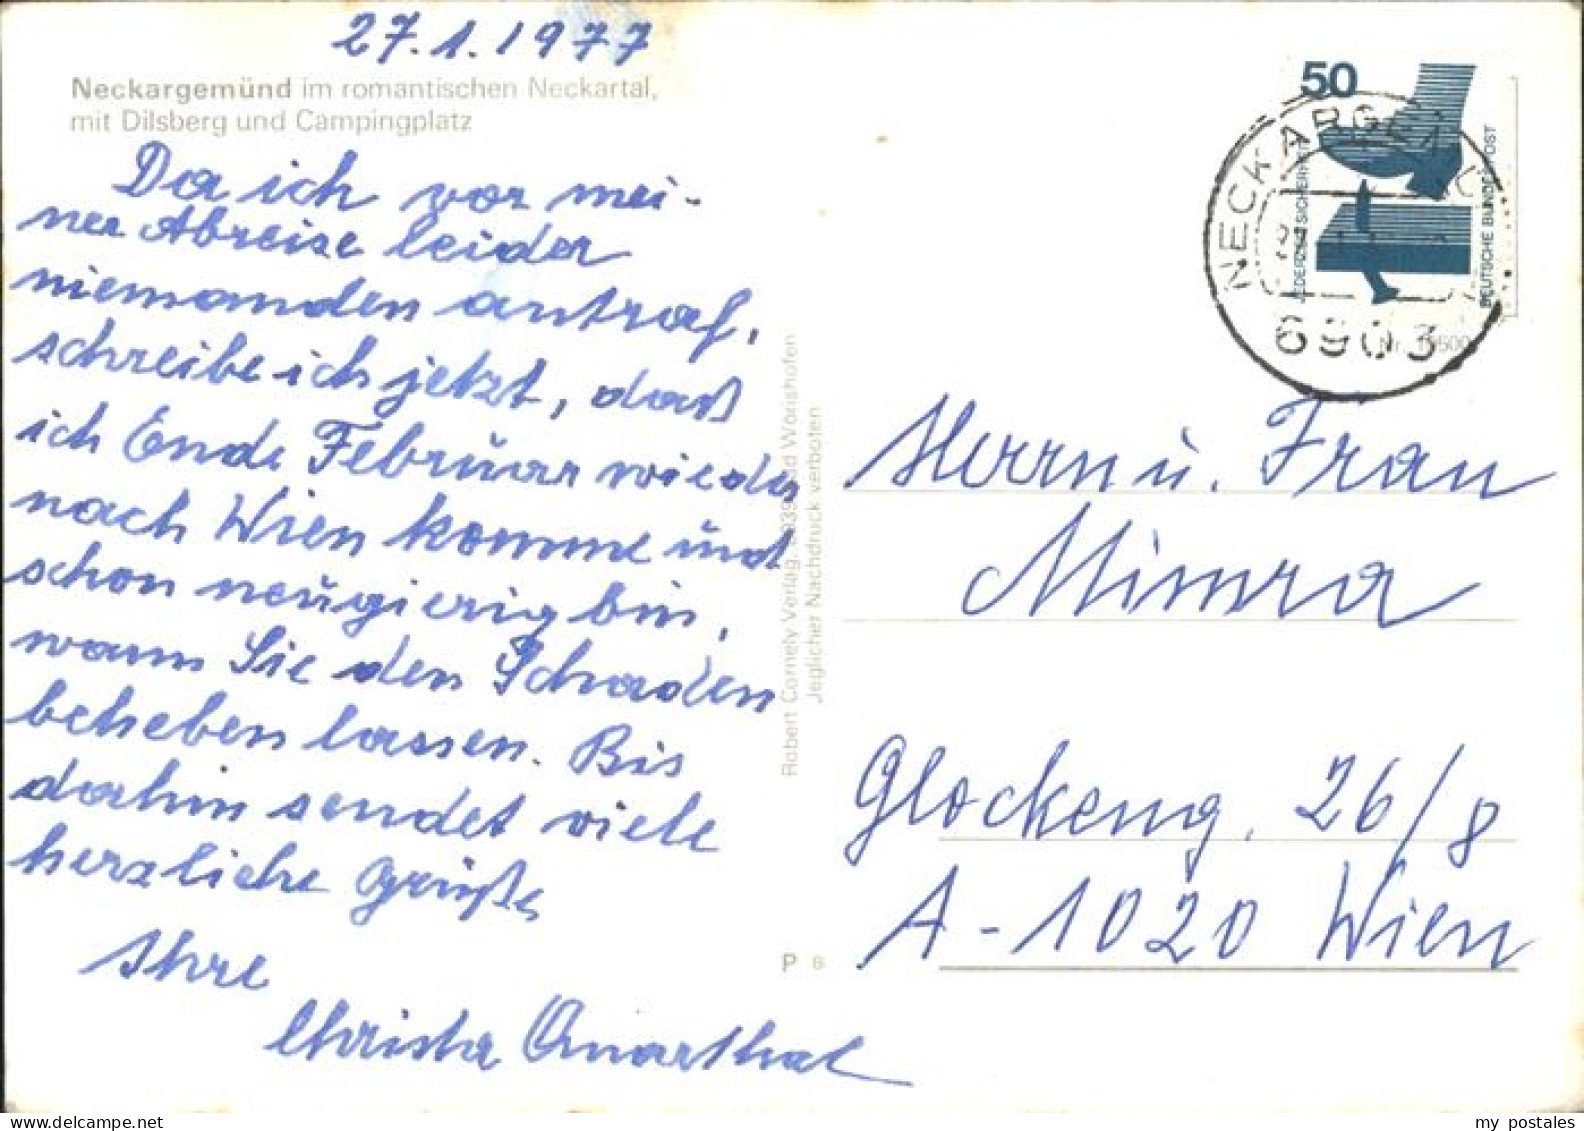 27.1.1977
Neckargemünd im romantischen Neckartal,
mit Dilsberg und Campingplatz
Da ich vor mei-
ner Abreise leider
niemanden antraf,
schreibe ich jetzt, daß
ich Ende Februar wieder
nach Wien komme und
schon neugierig bin,
wann Sie den Schaden
beheben lassen. Bis
dahin sendet viele
herzliche Grüße
Ihre
Christa
Robert Cornely Verlag, Bad Wörishofen
Jeglicher Nachdruck verboten
P 8
50
JEDERZEIT SICHERHEIT
DEUTSCHE BUNDESPOST
NECKARGEM
6903
Herrn u. Frau
Mimra
Glockeng. 26/8
A-1020 Wien
my postales